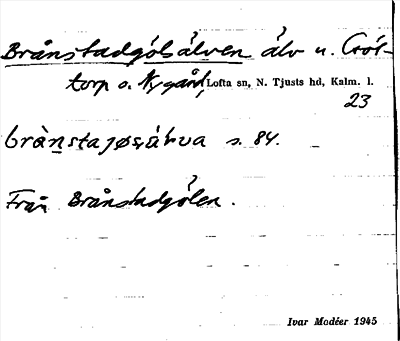 Brånstadgölsälven älv u.
torp o. Nygård, Lofta sn, N. Tjusts hd, Kalm. l.
23
s. 84.
Från Brånstadgölen.
Ivar Modéer 1945